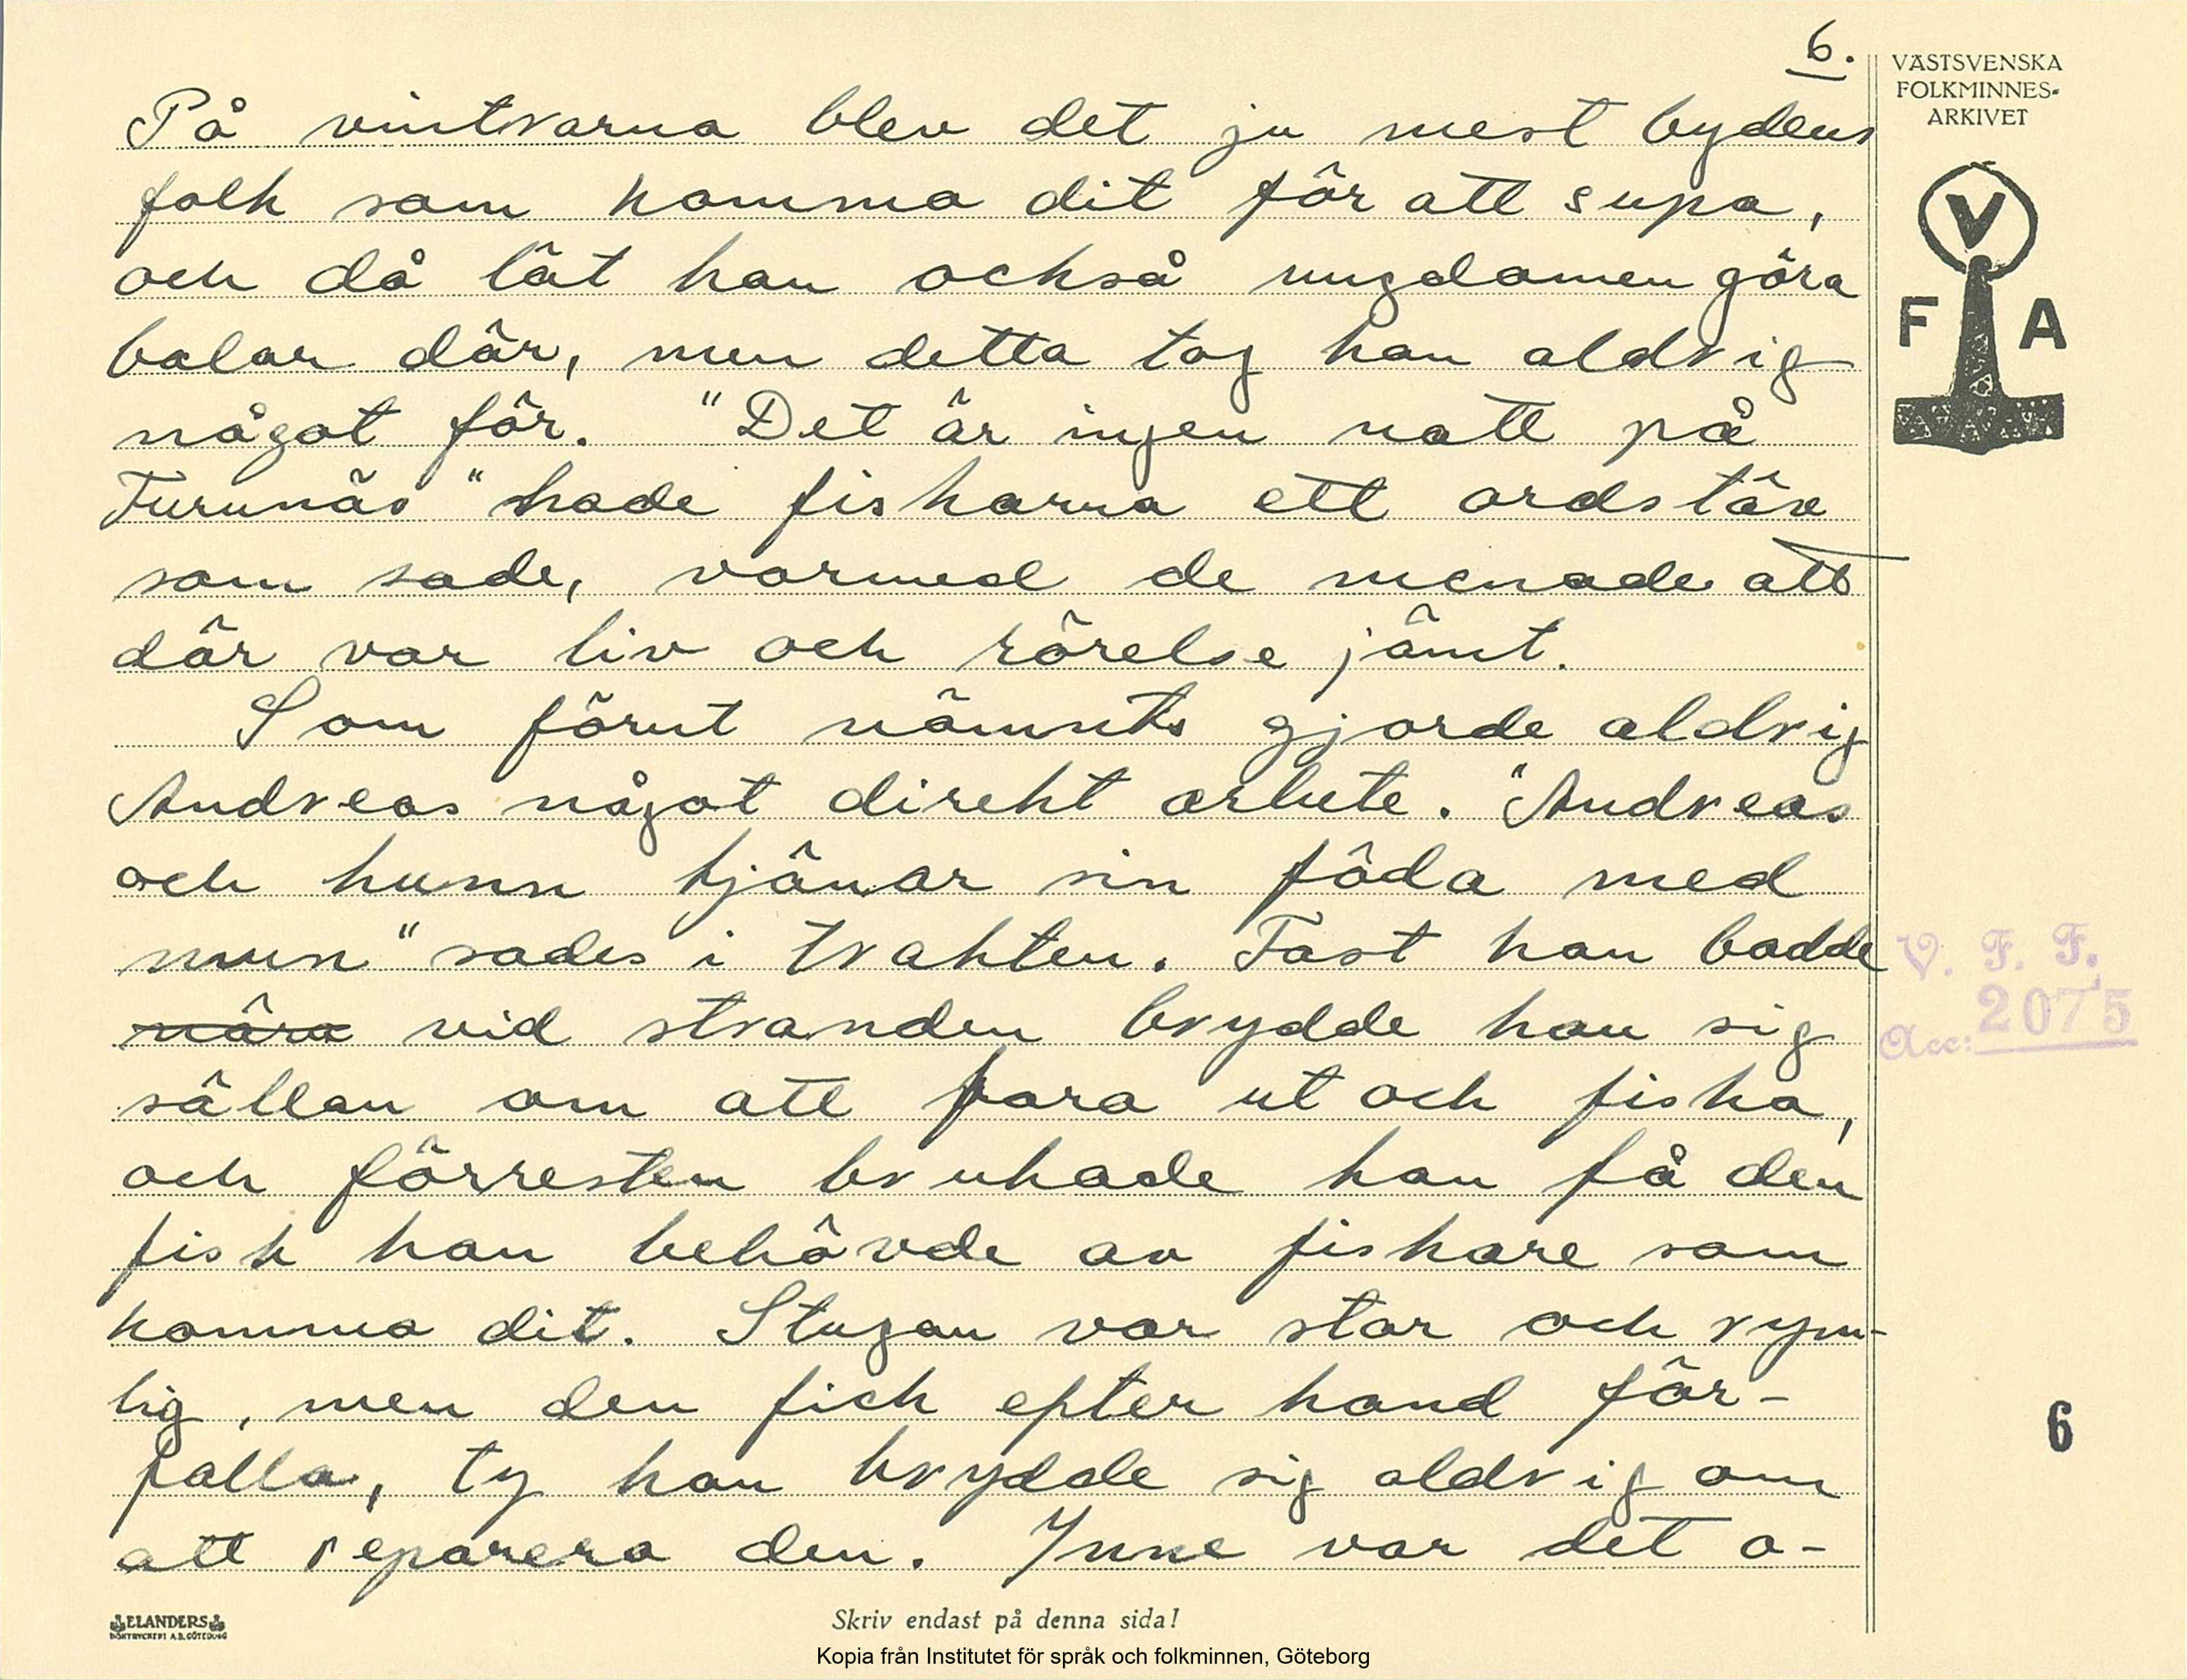 6.
VÄSTSVENSKA
FOLKMINNES-
ARKIVET
På vintrarna blev det ju mest bydens
folk som komma dit för att supa,
och då lät han också ungdomen göra
balar där, men detta tog han aldrig
något för. "Det är ingen natt på
Furunäs" hade fiskarna ett ordstäv
som sade, varmed de menade att
där var liv och rörelse jämt.
Som förut nämnts gjorde aldrig
Andreas något direkt arbete. "Andreas
och hunn tjänar sin föda med
mun" sades i trakten. Fast han bodde
nära vid stranden brydde han sig
sällan om att fara ut och fiska,
och förresten brukade han få den
fisk han behövde av fiskare som
komma dit. Stugan var stor och rym-
lig, men den fick efter hand för-
falla, ty han brydde sig aldrig om
att reparera den. Inne var det o-
V
F A
V. F. F.
Acc: 2075
6
ELANDERS
BOKTRYCKERI A.B. GÖTEBORG
Skriv endast på denna sida!
Kopia från Institutet för språk och folkminnen, Göteborg